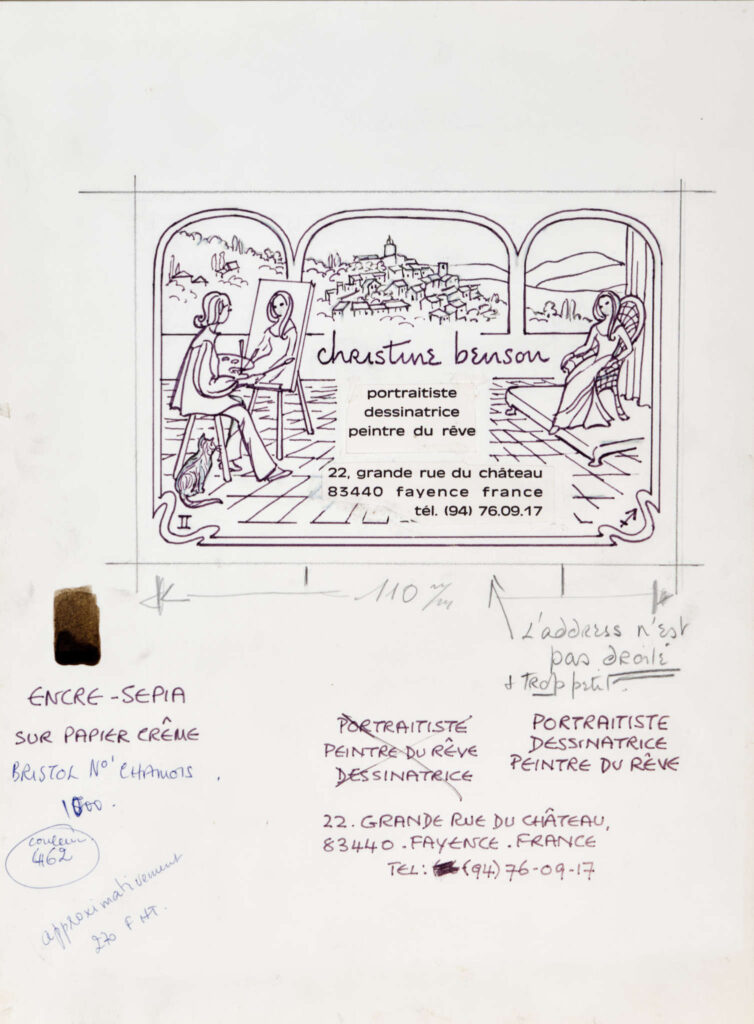 christine benson
portraitiste
dessinatrice
peintre du rêve
22, grande rue du château
83440 fayence france
tél. (94) 76.09.17
II
110 m/m
L'address n'est
pas droite
+ trop petit.
ENCRE-SEPIA
SUR PAPIER CRÊME
BRISTOL No' CHAMOIS
1000.
couleur
462
approximativement
270 F HT.
PORTRAITISTE
PEINTRE DU RÊVE
DESSINATRICE
PORTRAITISTE
DESSINATRICE
PEINTRE DU RÊVE
22. GRANDE RUE DU CHÂTEAU,
83440. FAYENCE. FRANCE
TEL: (94) 76-09-17